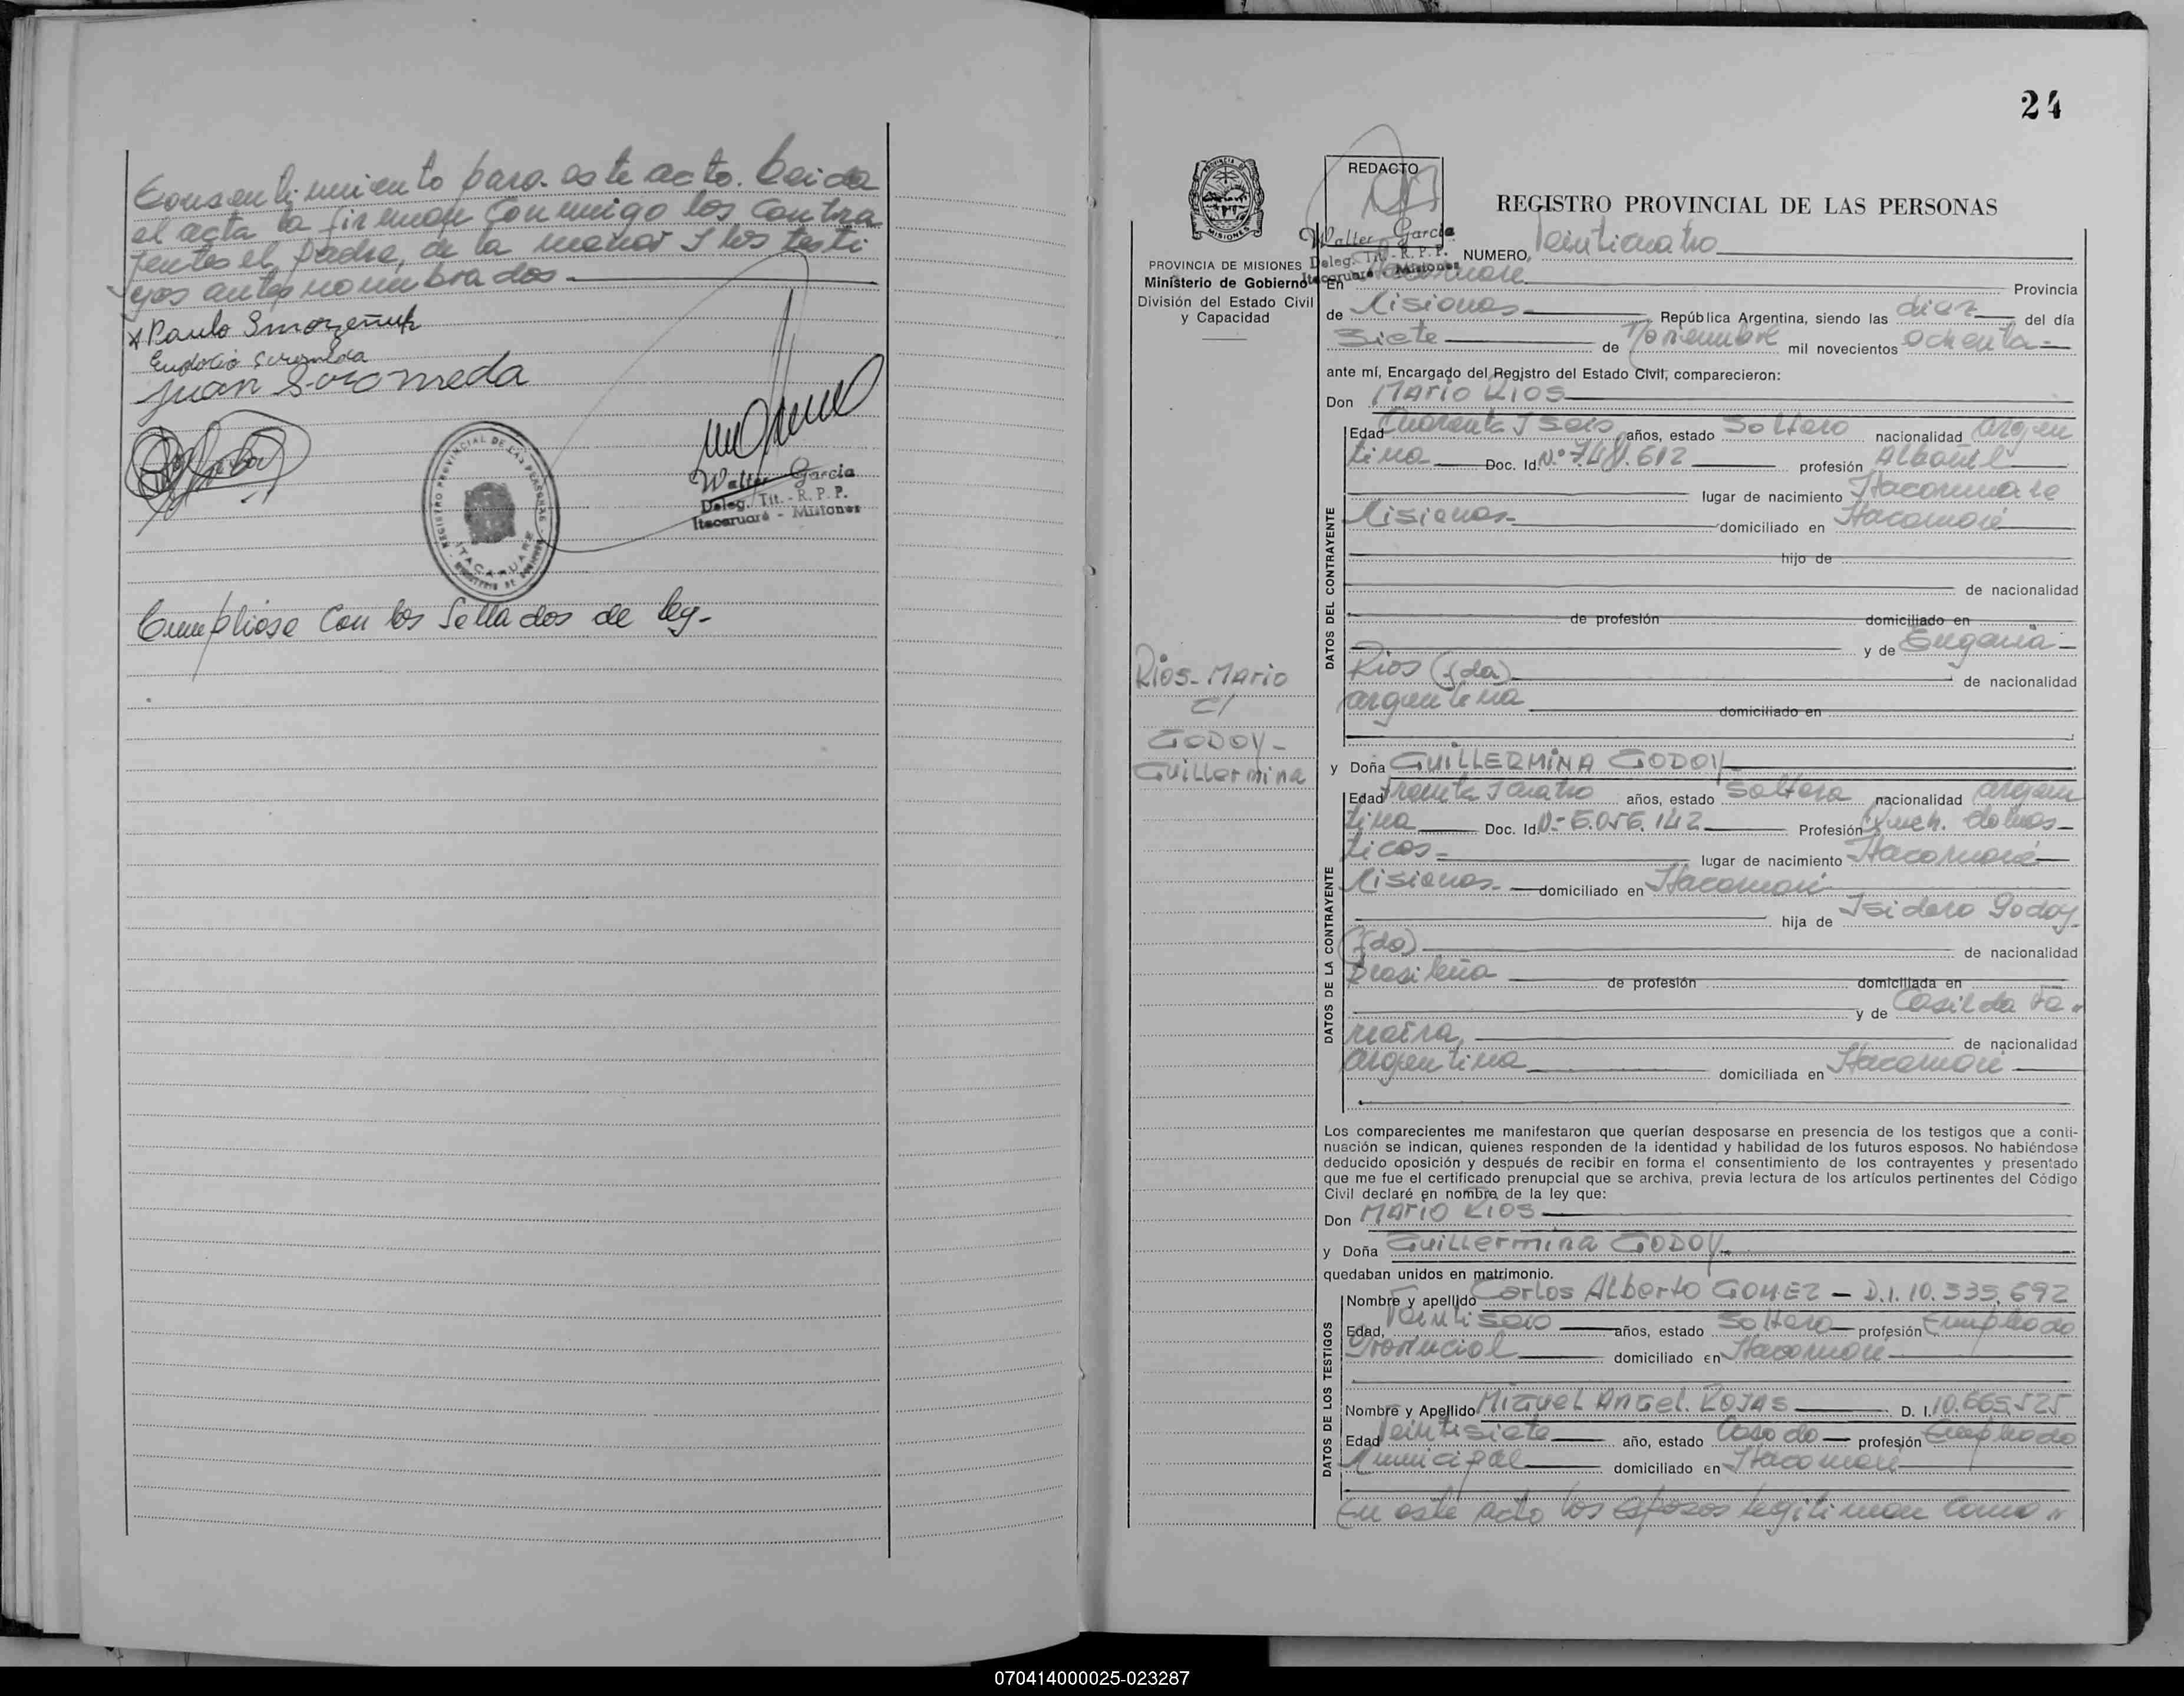 Consentimiento para este acto. Leida
el acta la firman conmigo los contra
yentes el padre, de la menor y los testi
gos antes nombrados.
x Paulo
Juan
Walter Garcia
Deleg. Tit. - R. P. P.
Itacaruaré - Misiones
REGISTRO PROVINCIAL DE LAS PERSONAS
ITACARUARE
Cumpliose con los Sellados de ley-
24
REDACTO
Walter Garcia
Deleg. Tit. - R. P. P.
Itacaruaré - Misiones
PROVINCIA DE MISIONES
Ministerio de Gobierno
División del Estado Civil
y Capacidad
Rios- Mario
c/
GODOY-
Guillermina
REGISTRO PROVINCIAL DE LAS PERSONAS
NUMERO, Veinticuatro
En Itacaruare Provincia
de Misiones República Argentina, siendo las diez del día
Siete de Noviembre mil novecientos ochenta-
ante mí, Encargado del Registro del Estado Civil, comparecieron:
Don MARIO RIOS
DATOS DEL CONTRAYENTE
Edad Cuarenta y Seis años, estado Soltero nacionalidad argen
tina Doc. Id. Nº profesión Albañil
lugar de nacimiento Itacaruare
Misiones- domiciliado en Itacaruaré
hijo de
de nacionalidad
de profesión domiciliado en
y de Eugenia-
Rios (fda) de nacionalidad
argentina domiciliado en
y Doña GUILLERMINA GODOY
DATOS DE LA CONTRAYENTE
Edad Treinta y Cuatro años, estado Soltera nacionalidad argen
tina Doc. Id. Nº 6.056.142 Profesión Queh. domes-
ticos- lugar de nacimiento Itacaruaré
Misiones- domiciliado en Itacaruaré
hija de Isidoro Godoy
(fdo) de nacionalidad
Brasileña de profesión domiciliada en
y de Casilda Fe-
rreira, de nacionalidad
argentina domiciliada en Itacaruaré
Los comparecientes me manifestaron que querían desposarse en presencia de los testigos que a conti-
nuación se indican, quienes responden de la identidad y habilidad de los futuros esposos. No habiéndose
deducido oposición y después de recibir en forma el consentimiento de los contrayentes y presentado
que me fue el certificado prenupcial que se archiva, previa lectura de los artículos pertinentes del Código
Civil declaré en nombre de la ley que:
Don MARIO RIOS
y Doña Guillermina GODOY
quedaban unidos en matrimonio.
DATOS DE LOS TESTIGOS
Nombre y apellido Carlos Alberto GOMEZ - D.I. 10.335.692
Edad, Veintiseis años, estado Soltero profesión Empleado
Provincial domiciliado en Itacaruaré
Nombre y Apellido Miguel Angel. ROJAS D. I. 10.665.525
Edad Veintisiete año, estado Casado profesión Empleado
Municipal domiciliado en Itacaruaré
En este acto los esposos legitiman como
070414000025-023287